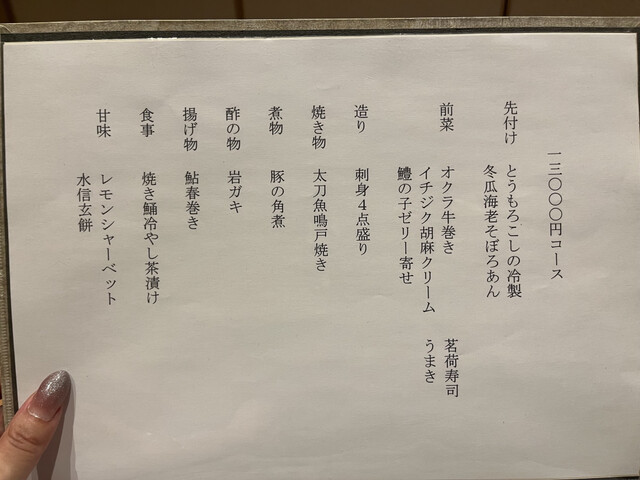 一三〇〇〇円コース
先付け とうもろこしの冷製
冬瓜海老そぼろあん
前菜 オクラ牛巻き 茗荷寿司
イチジク胡麻クリーム うまき
鱧の子ゼリー寄せ
造り 刺身4点盛り
焼き物 太刀魚鳴戸焼き
煮物 豚の角煮
酢の物 岩ガキ
揚げ物 鮎春巻き
食事 焼き鯒冷やし茶漬け
甘味 レモンシャーベット
水信玄餅